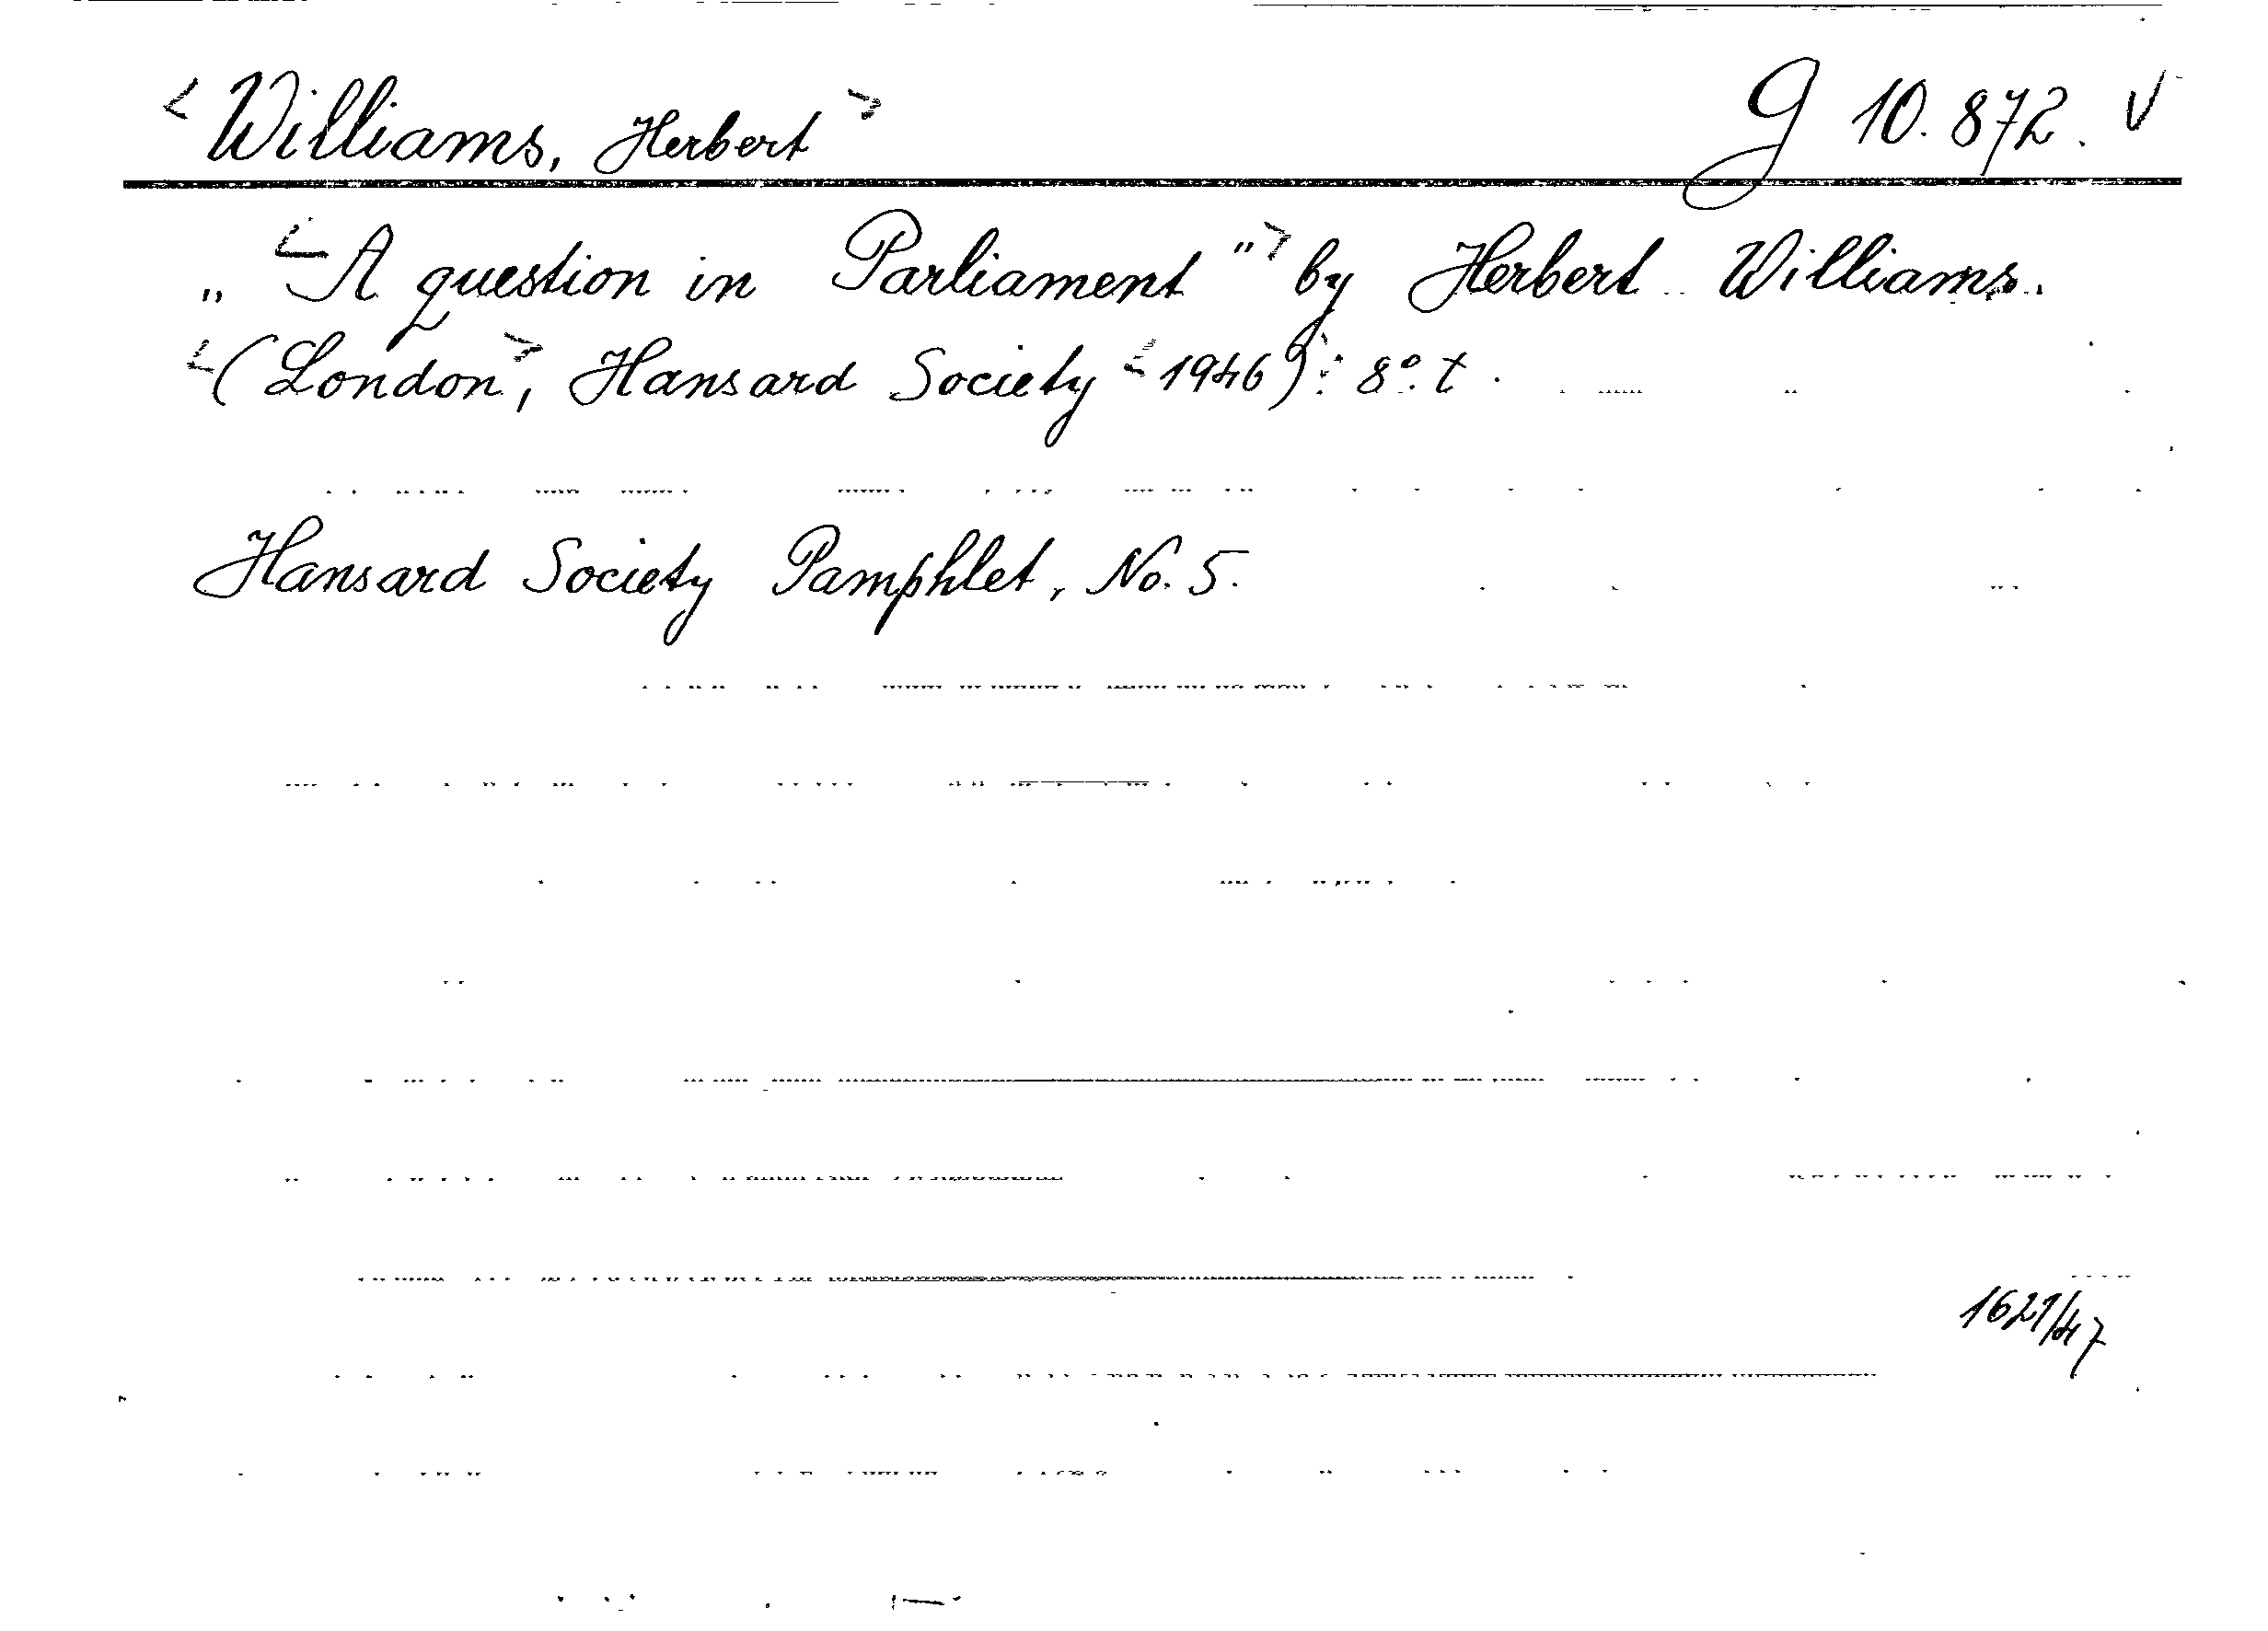 <Williams, Herbert> G 10.872. V
„<A question in Parliament"> by Herbert Williams.
<(London>, Hansard Society <1946): 8°. t.
Hansard Society Pamphlet, No. 5.
1621/47